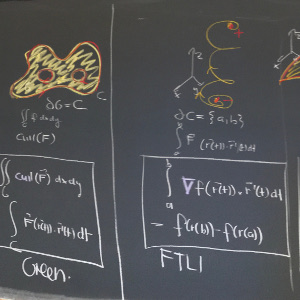 ∂G = C
C
∬ f dxdy
curl(F)
∬ curl(F⃗) dxdy
∫ F⃗(r⃗(t)).r⃗'(t) dt
C
Green.
z
∂C = {a,b}
∫ F⃗ (r⃗(t)).r⃗'(t) dt
b
∫ ∇f(r⃗(t)).r⃗'(t) dt
a
= f(r(b)) - f(r(a))
FTLI